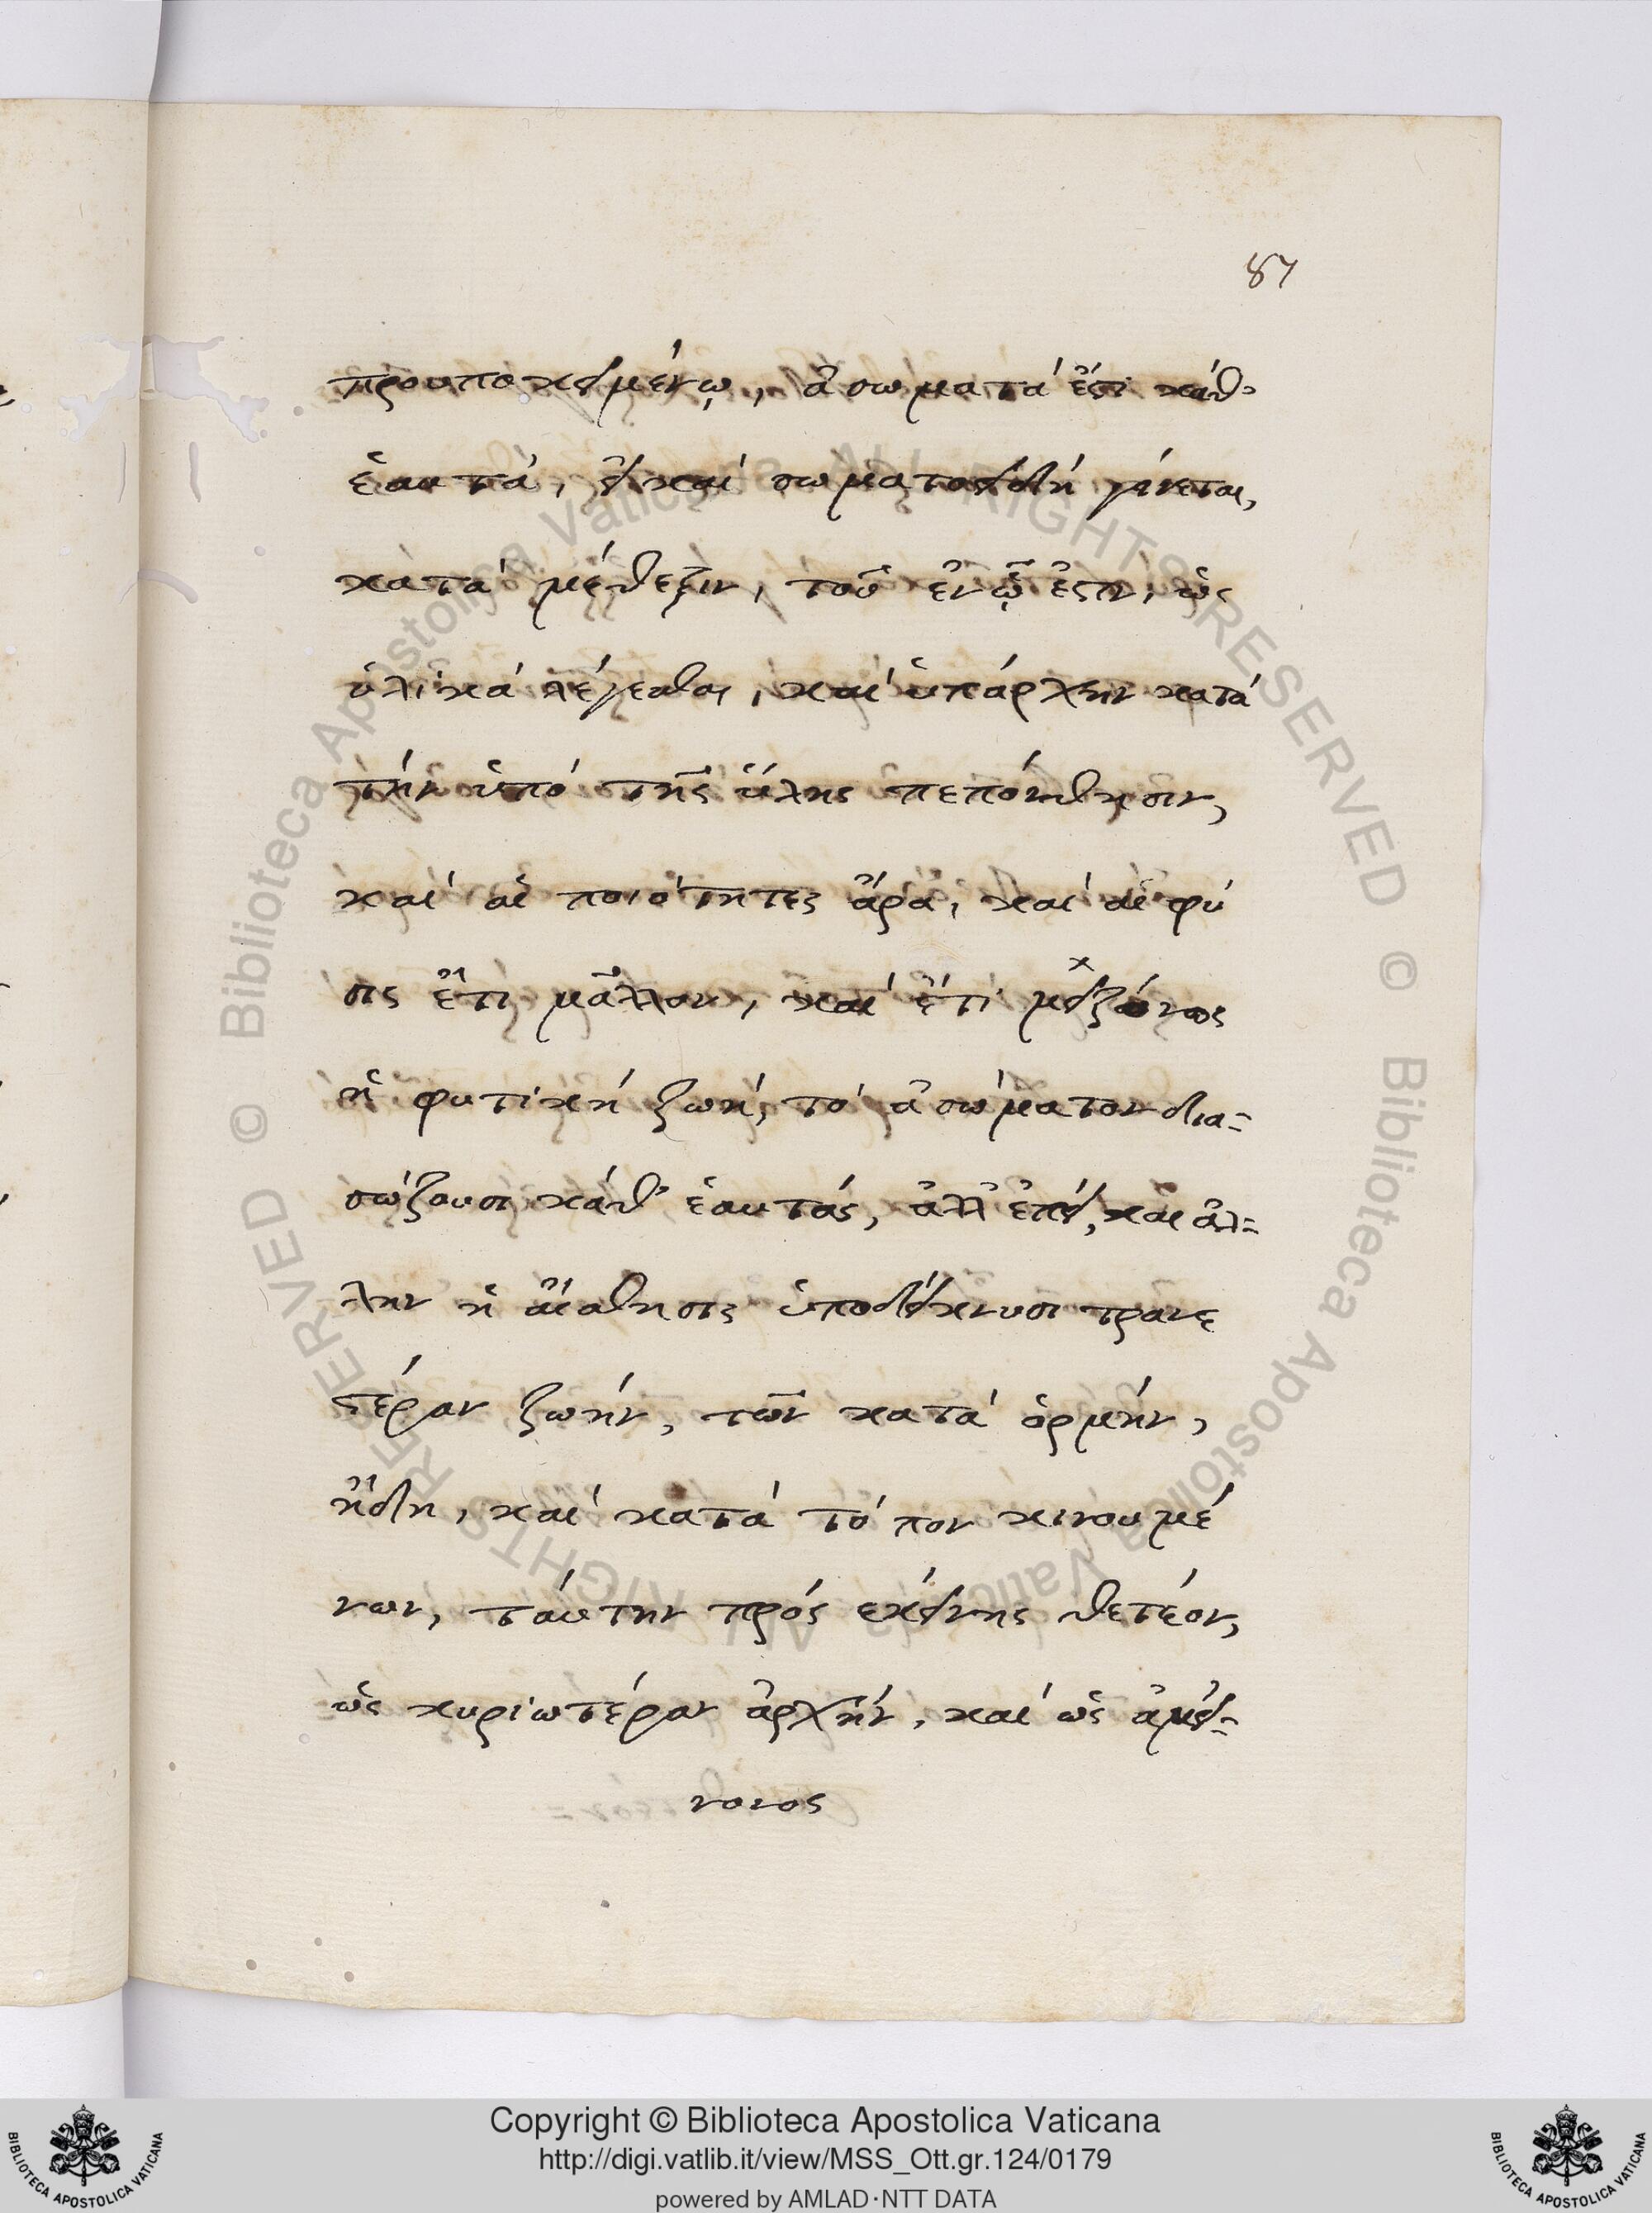 87
προυποκειμένῳ, ἀσωματά ἐστι κάθ'
ἑαυτά, εἰ καί σωματοειδῆ γίνεται,
κατά μέθεξιν, τοῦ ἐν ᾧ ἐστιν, ὡς
ὑλικά λέγεσθαι, καί ὑπάρχειν κατά
τήν ὑπό τῆς ὕλης πεπόνθησιν,
καί αἱ ποιότητες ἄρα, καί αἱ φύ
σις ἔτι μᾶλλον, καί ἔτι μειζόνως
ἡ φυτική ζωή, τό ἀσώματον δια=
σώζουσι κάθ' ἑαυτάς, ἀλλ' ἐπεί, και ἀλ=
λην ἡ αἴσθησις ὑποδείκνυσι τρανε
τέραν ζωήν, τῶν κατά ὁρμήν,
ἤδη, καί κατά τόπον κινουμέ
νων, ταύτην πρός εκείνης θετέον,
ὡς κυριωτέραν ἀρχήν, καί ὡς ἀμεί=
νονος
Copyright © Biblioteca Apostolica Vaticana
http://digi.vatlib.it/view/MSS_Ott.gr.124/0179
powered by AMLAD·NTT DATA
BIBLIOTECA APOSTOLICA VATICANA
BIBLIOTECA APOSTOLICA VATICANA
© Biblioteca Apostolica Vaticana ALL RIGHTS RESERVED © Biblioteca Apostolica Vaticana ALL RIGHTS RESERVED